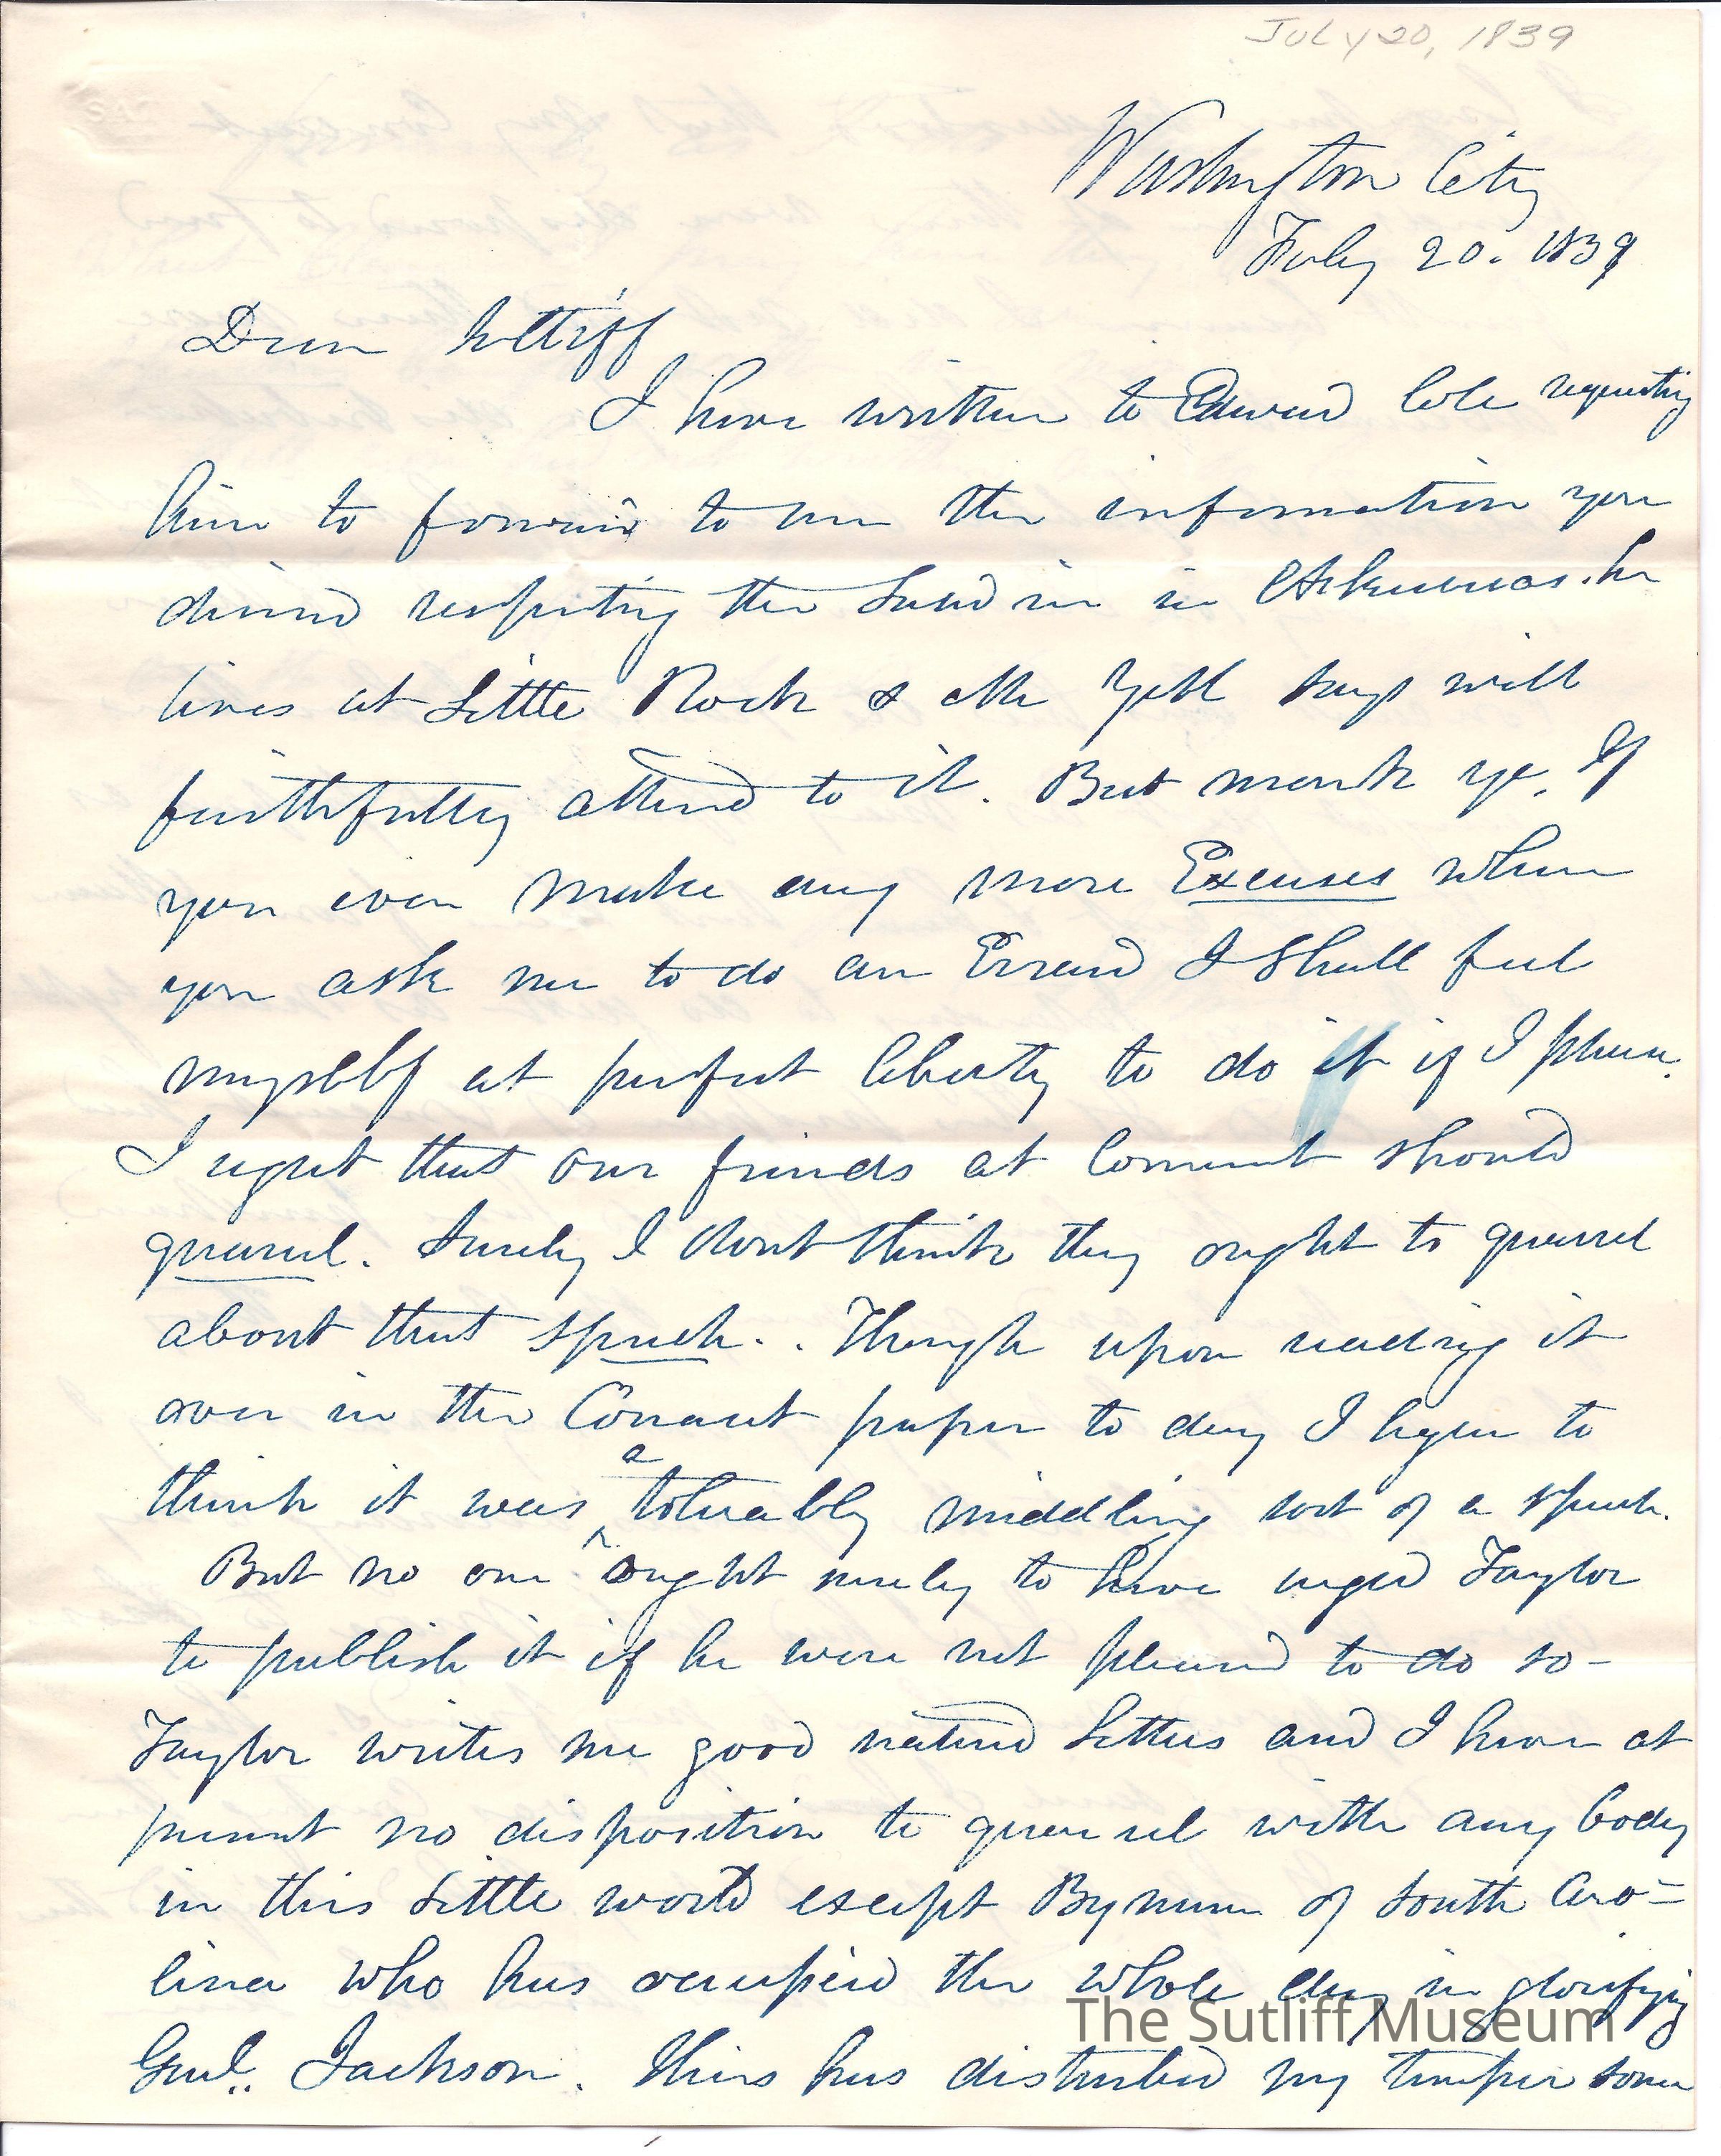 JULY 20, 1839
Washington City
July 20. 1839
Dear Sutliff
I have written to Edward Cole requesting
him to forward to me the information you
desired respecting the Land in in Arkansas. he
lives at Little Rock & Mr Yell says will
faithfully attend to it. But mark ye, If
you ever make any more Excuses when
you ask me to do an Errand I Shall feel
myself at perfect liberty to do it if I please.
I regret that our friends at Conneaut should
quarrel. Surely I dont think they ought to quarrel
about that speech. Though upon reading it
over in the Conaut paper to day I begin to
think it was a toluerably middling sort of a speech.
But no one ought surely to have urged Taylor
to publish it if he were not pleased to do so -
Taylor writes me good natured Letters and I have at
present no disposition to quarrel with any body
in this Little world except Bynum of South Caro=
lina who has occupied the whole day in glorifying
Genl. Jackson. This has disturbed my temper some
The Sutliff Museum